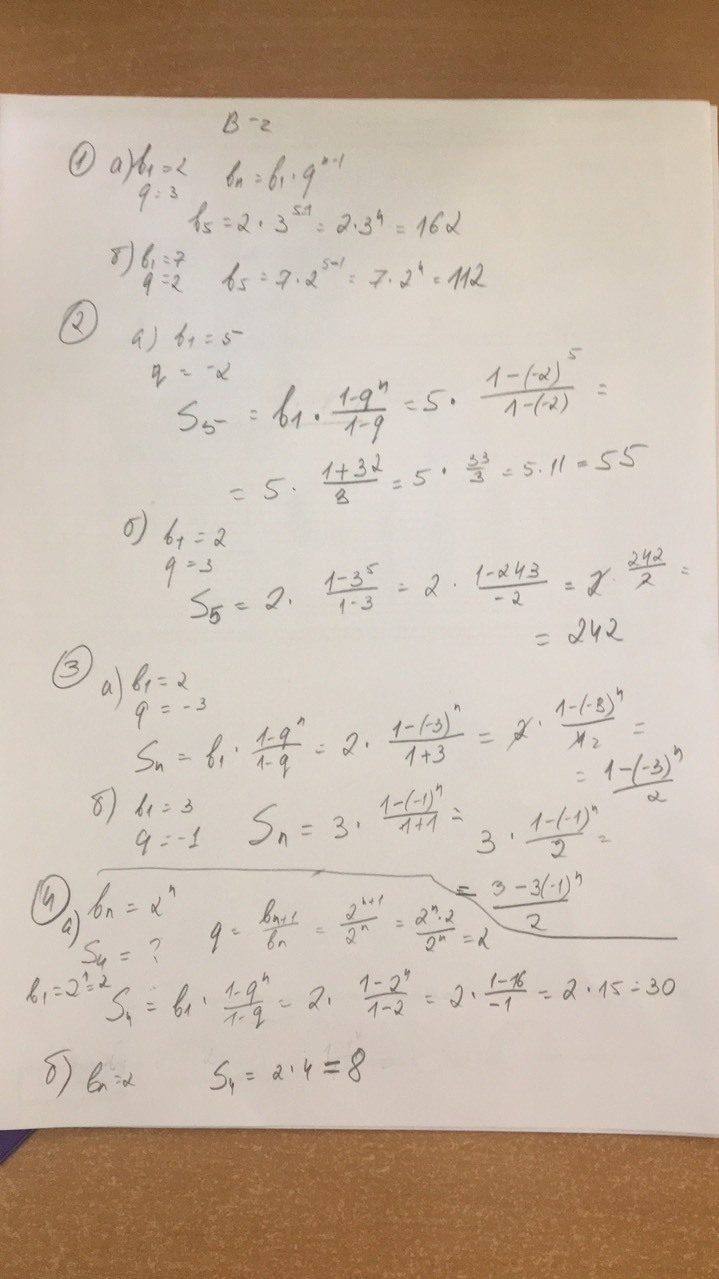 В-2
① а) b₁=2 bₙ=b₁·qⁿ⁻¹
q=3
b₅=2·3⁵⁻¹=2·3⁴=162
б) b₁=7
q=2 b₅=7·2⁵⁻¹=7·2⁴=112
②
а) b₁=5
q=-2
S₅=b₁·(1-qⁿ)/(1-q)=5·(1-(-2)⁵)/(1-(-2))=
=5·(1+32)/3=5·33/3=5·11=55
б) b₁=2
q=3
S₅=2·(1-3⁵)/(1-3)=2·(1-243)/(-2)=2·242/2=
=242
③ а) b₁=2
q=-3
Sₙ=b₁·(1-qⁿ)/(1-q)=2·(1-(-3)ⁿ)/(1+3)=2·(1-(-3)ⁿ)/(4 2)=
=(1-(-3)ⁿ)/2
б) b₁=3
q=-1 Sₙ=3·(1-(-1)ⁿ)/(1+1)=3·(1-(-1)ⁿ)/2=
=(3-3(-1)ⁿ)/2
④ а) bₙ=2ⁿ
S₄=? q=bₙ₊₁/bₙ=2ⁿ⁺¹/2ⁿ=(2ⁿ·2)/2ⁿ=2
b₁=2¹=2 S₄=b₁·(1-qⁿ)/(1-q)=2·(1-2⁴)/(1-2)=2·(1-16)/(-1)=2·15=30
б) bₙ=2 S₄=2·4=8